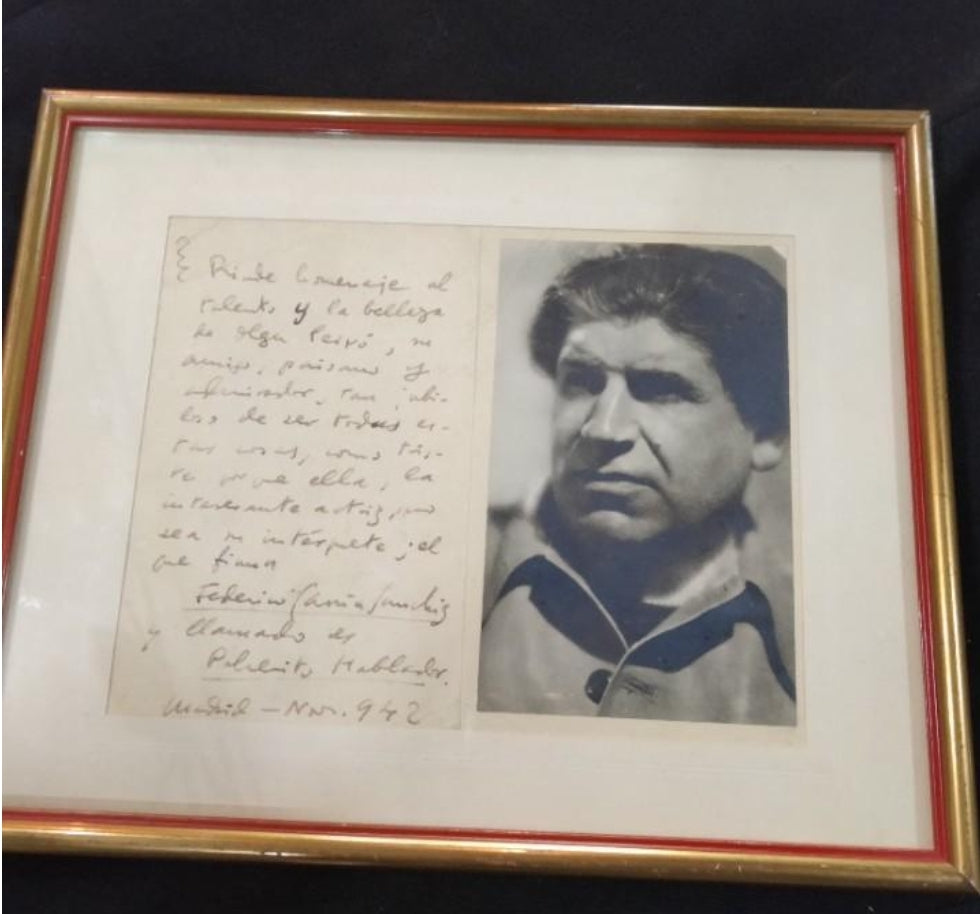 Rinde homenaje al
talento y la belleza
de Olga Peiró, su
amigo, paisano y
admirador, tan jubi-
loso de ser todas es-
tas cosas, como tris-
te porque ella, la
interesante actriz, no
sea su intérprete; el
que firma
Federico García Sanchiz
y llamado el
Hablador.
Madrid - Nov. 942